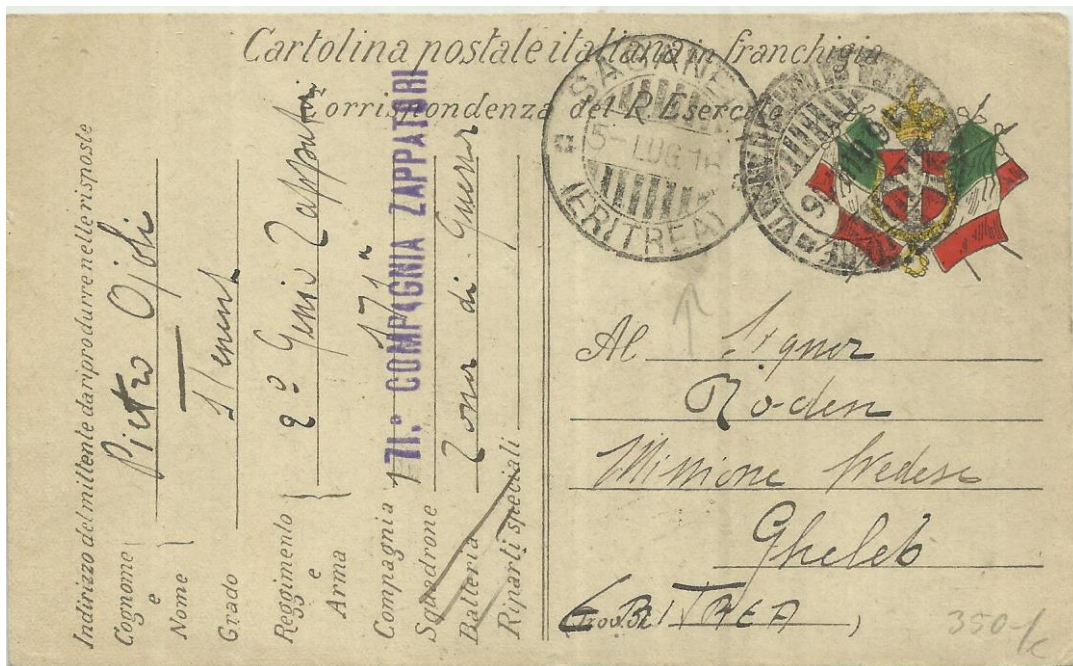 Cartolina postale italiana in franchigia
Corrispondenza del R. Esercito
SAGANE
5 - LUG 16
(ERITREA)
Indirizzo del mittente da riprodurre nelle risposte
Cognome e Nome Pietro Ojoli
Grado
Reggimento e Arma 2º Genio Zappatori
Compagnia 171ª
171.º COMPAGNIA ZAPPATORI
Squadrone
Batteria Zona di Guerra
Riparti speciali
Al Signor
Roden
Missione Svedese
Gheleb
(Prov. di ERITREA)
350